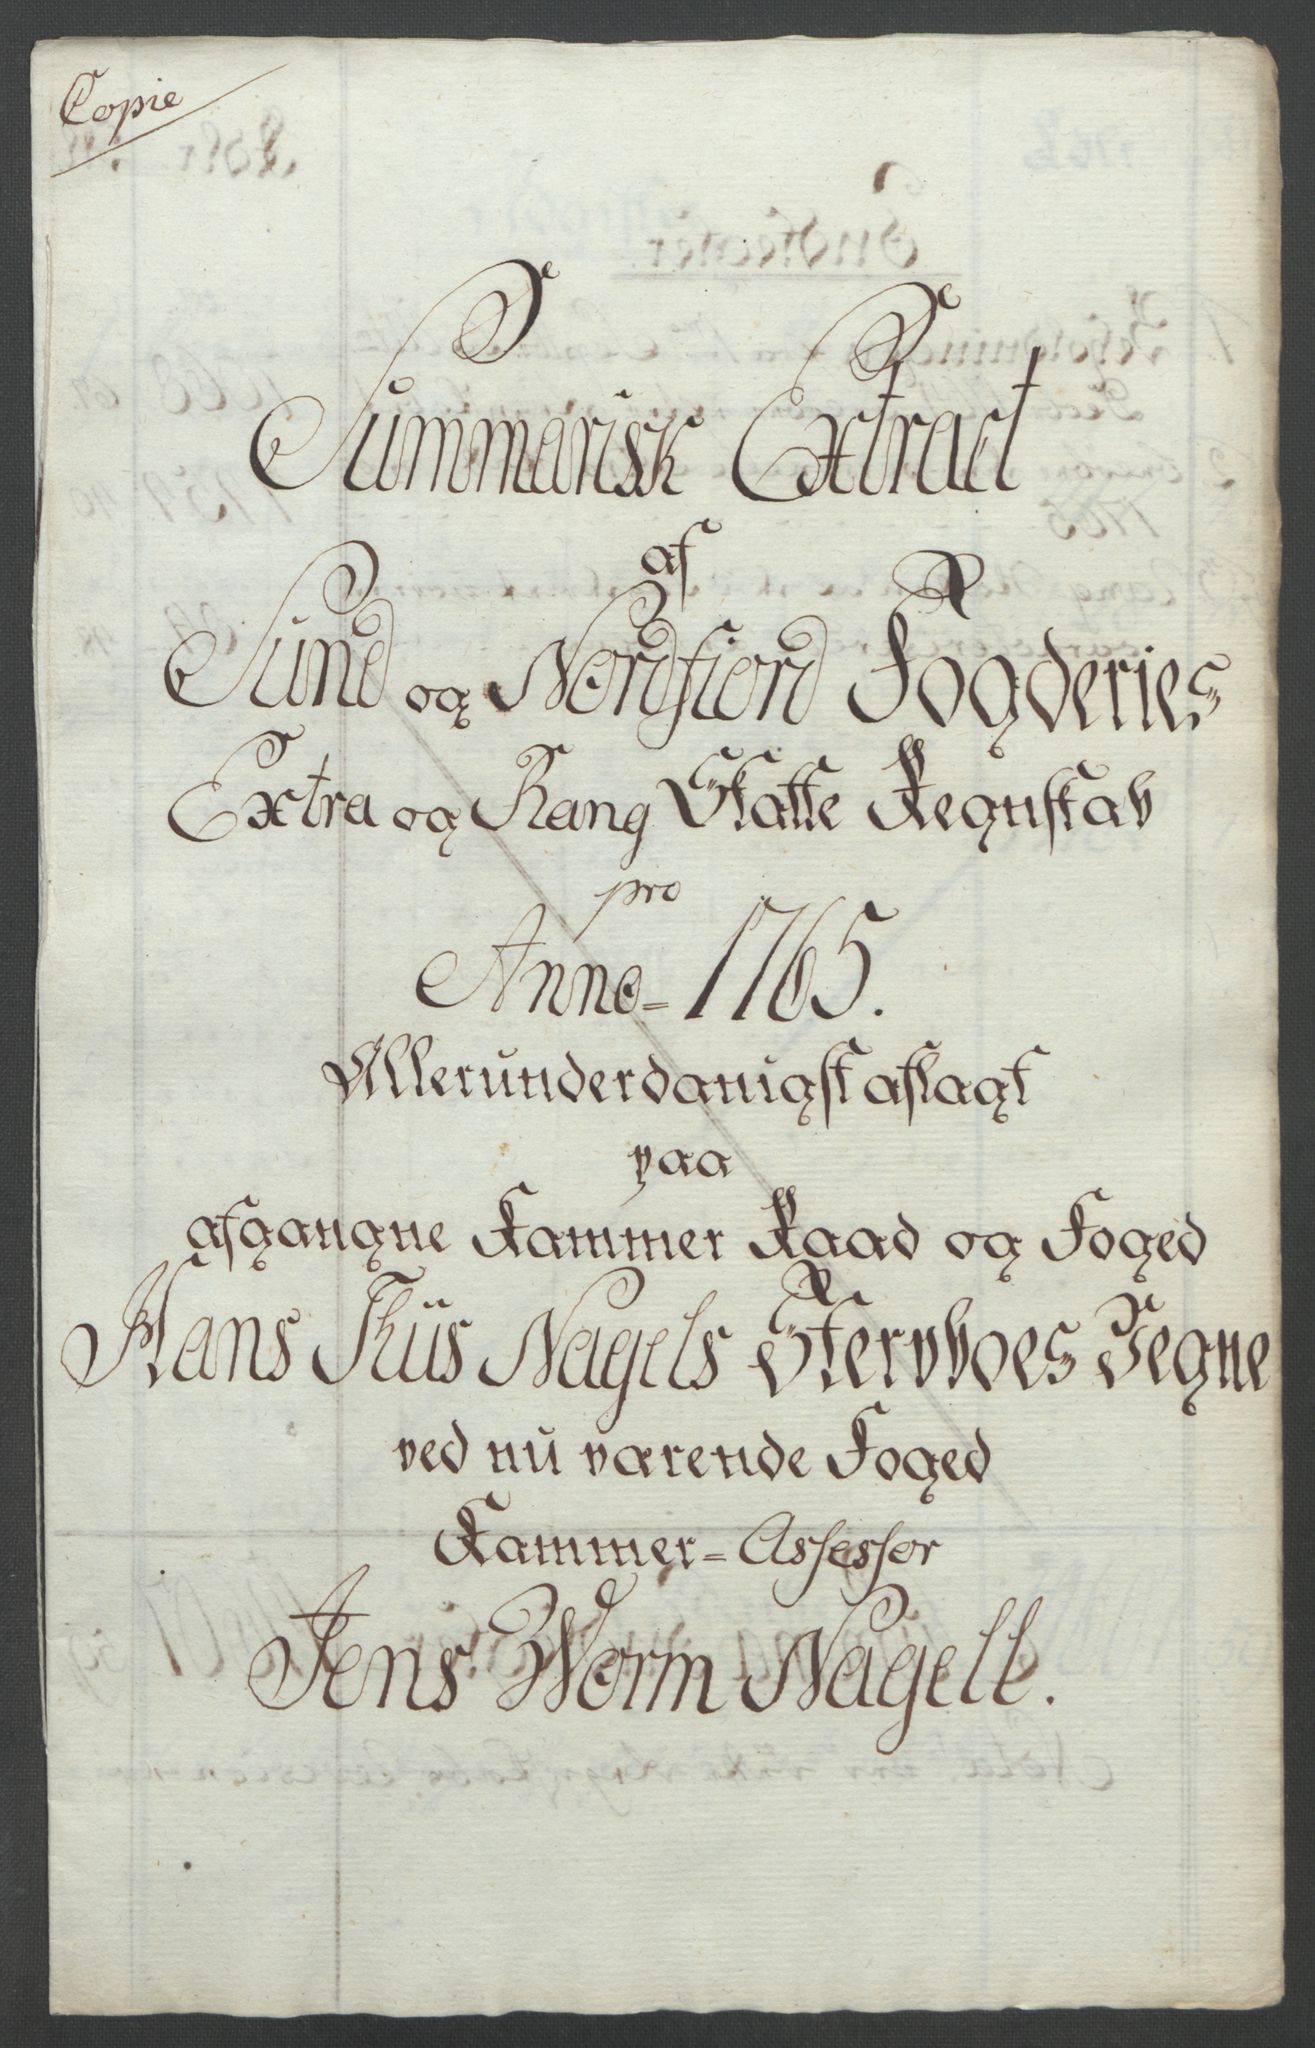 Copie
Summarisk Extract
af
Sund og Nordfiord Fogderies
Extra og Rang Skatte Regnskab
pro
Anno 1765.
Allerunderdanigst aflagt
paa
afgangne Kammer Raad og Foged
Hans Thiis Nagels Stervboes Vegne
ved nu værende Foged
Kammer-Assessor
Jens Worm Nagell.